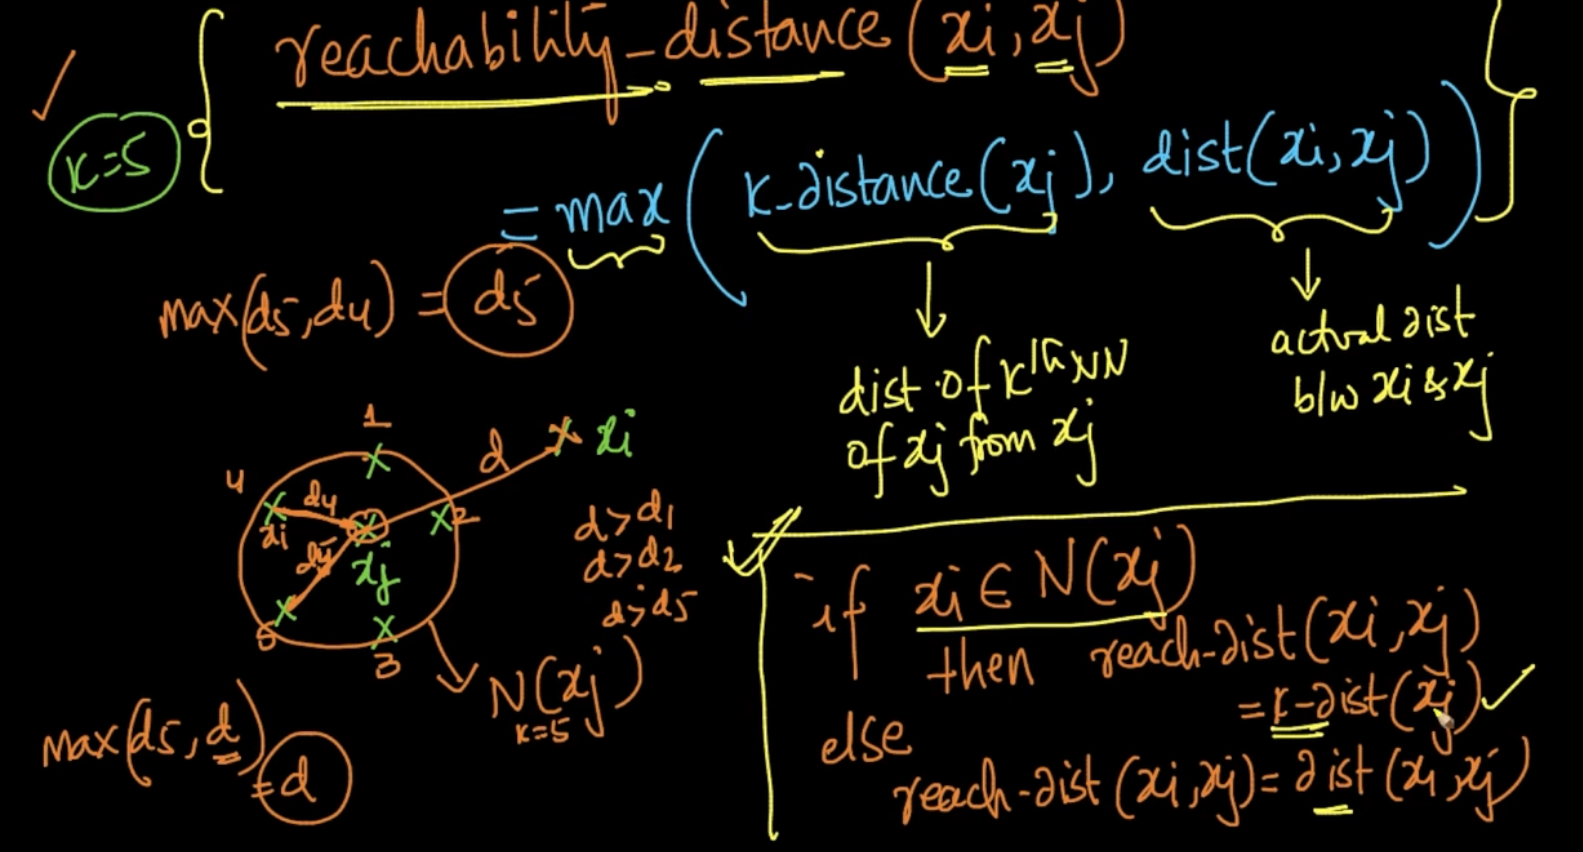 reachability-distance (xi, xj)
k=5
= max ( k-distance(xj), dist(xi, xj) )
max(d5, d4) = d5
dist of kth NN
of xj from xj
actual dist
b/w xi & xj
1
xi
d
4
d4
2
xi
xj
d5
5
3
d>d1
d>d2
d>d5
N(xj)
k=5
max(d5, d)
= d
if xi ∈ N(xj)
then reach-dist(xi, xj)
= k-dist(xj)
else
reach-dist (xi, xj) = dist (xi, xj)